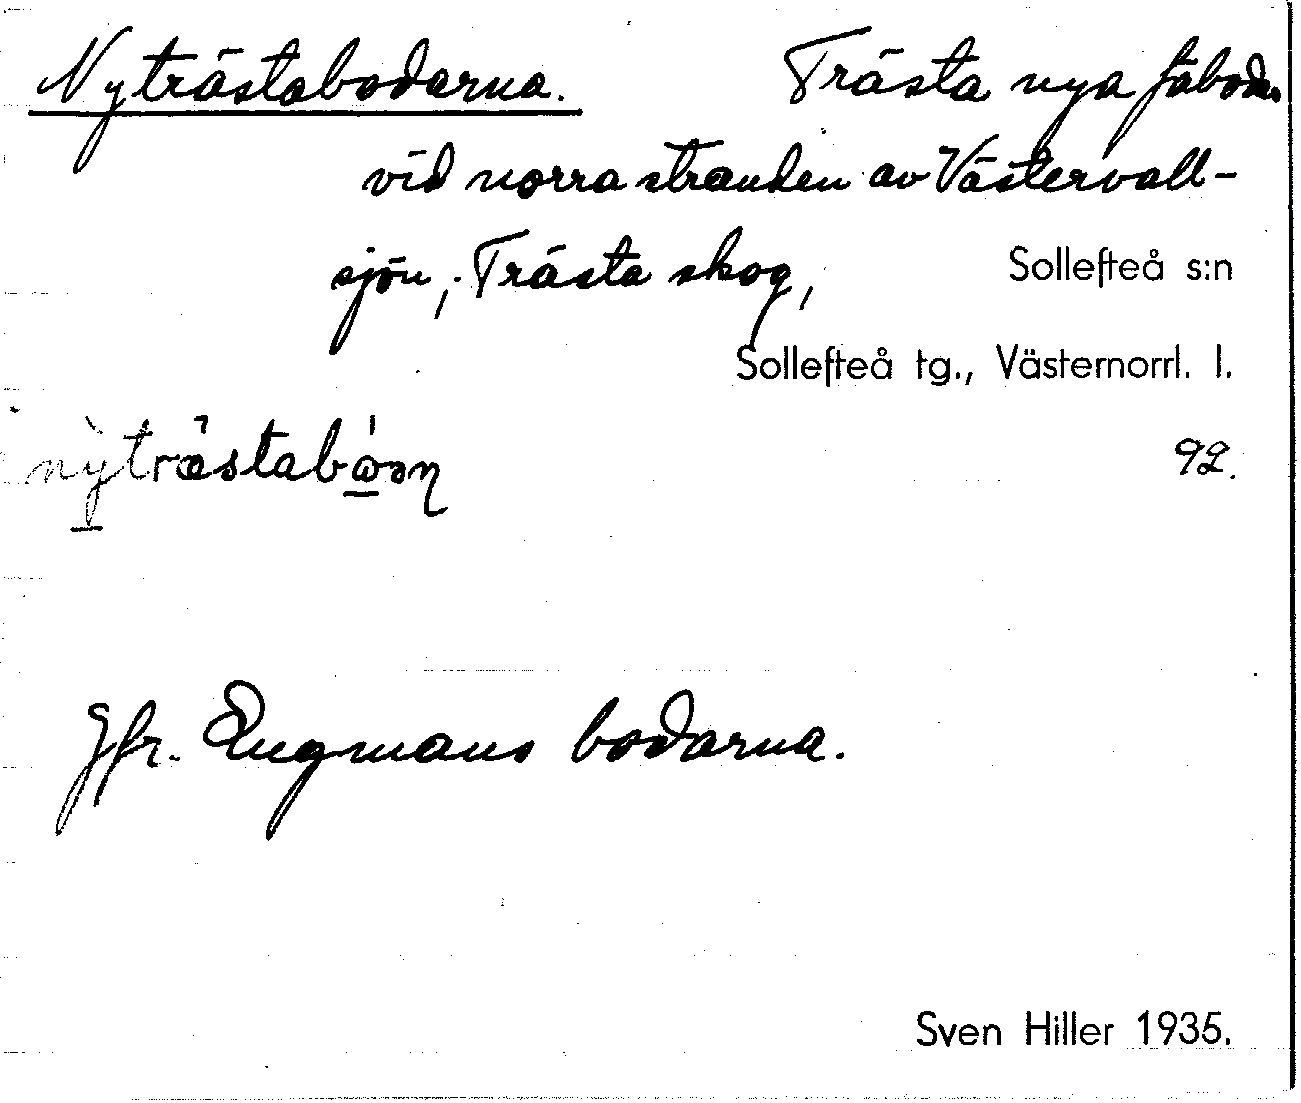 Nyträstabodarna. Trästa nya fäbodar
vid norra stranden av Västervall-
sjön, Trästa skog, Sollefteå s:n
Sollefteå tg., Västernorrl. l.
92.
Jfr. Engmans bodarna.
Sven Hiller 1935.